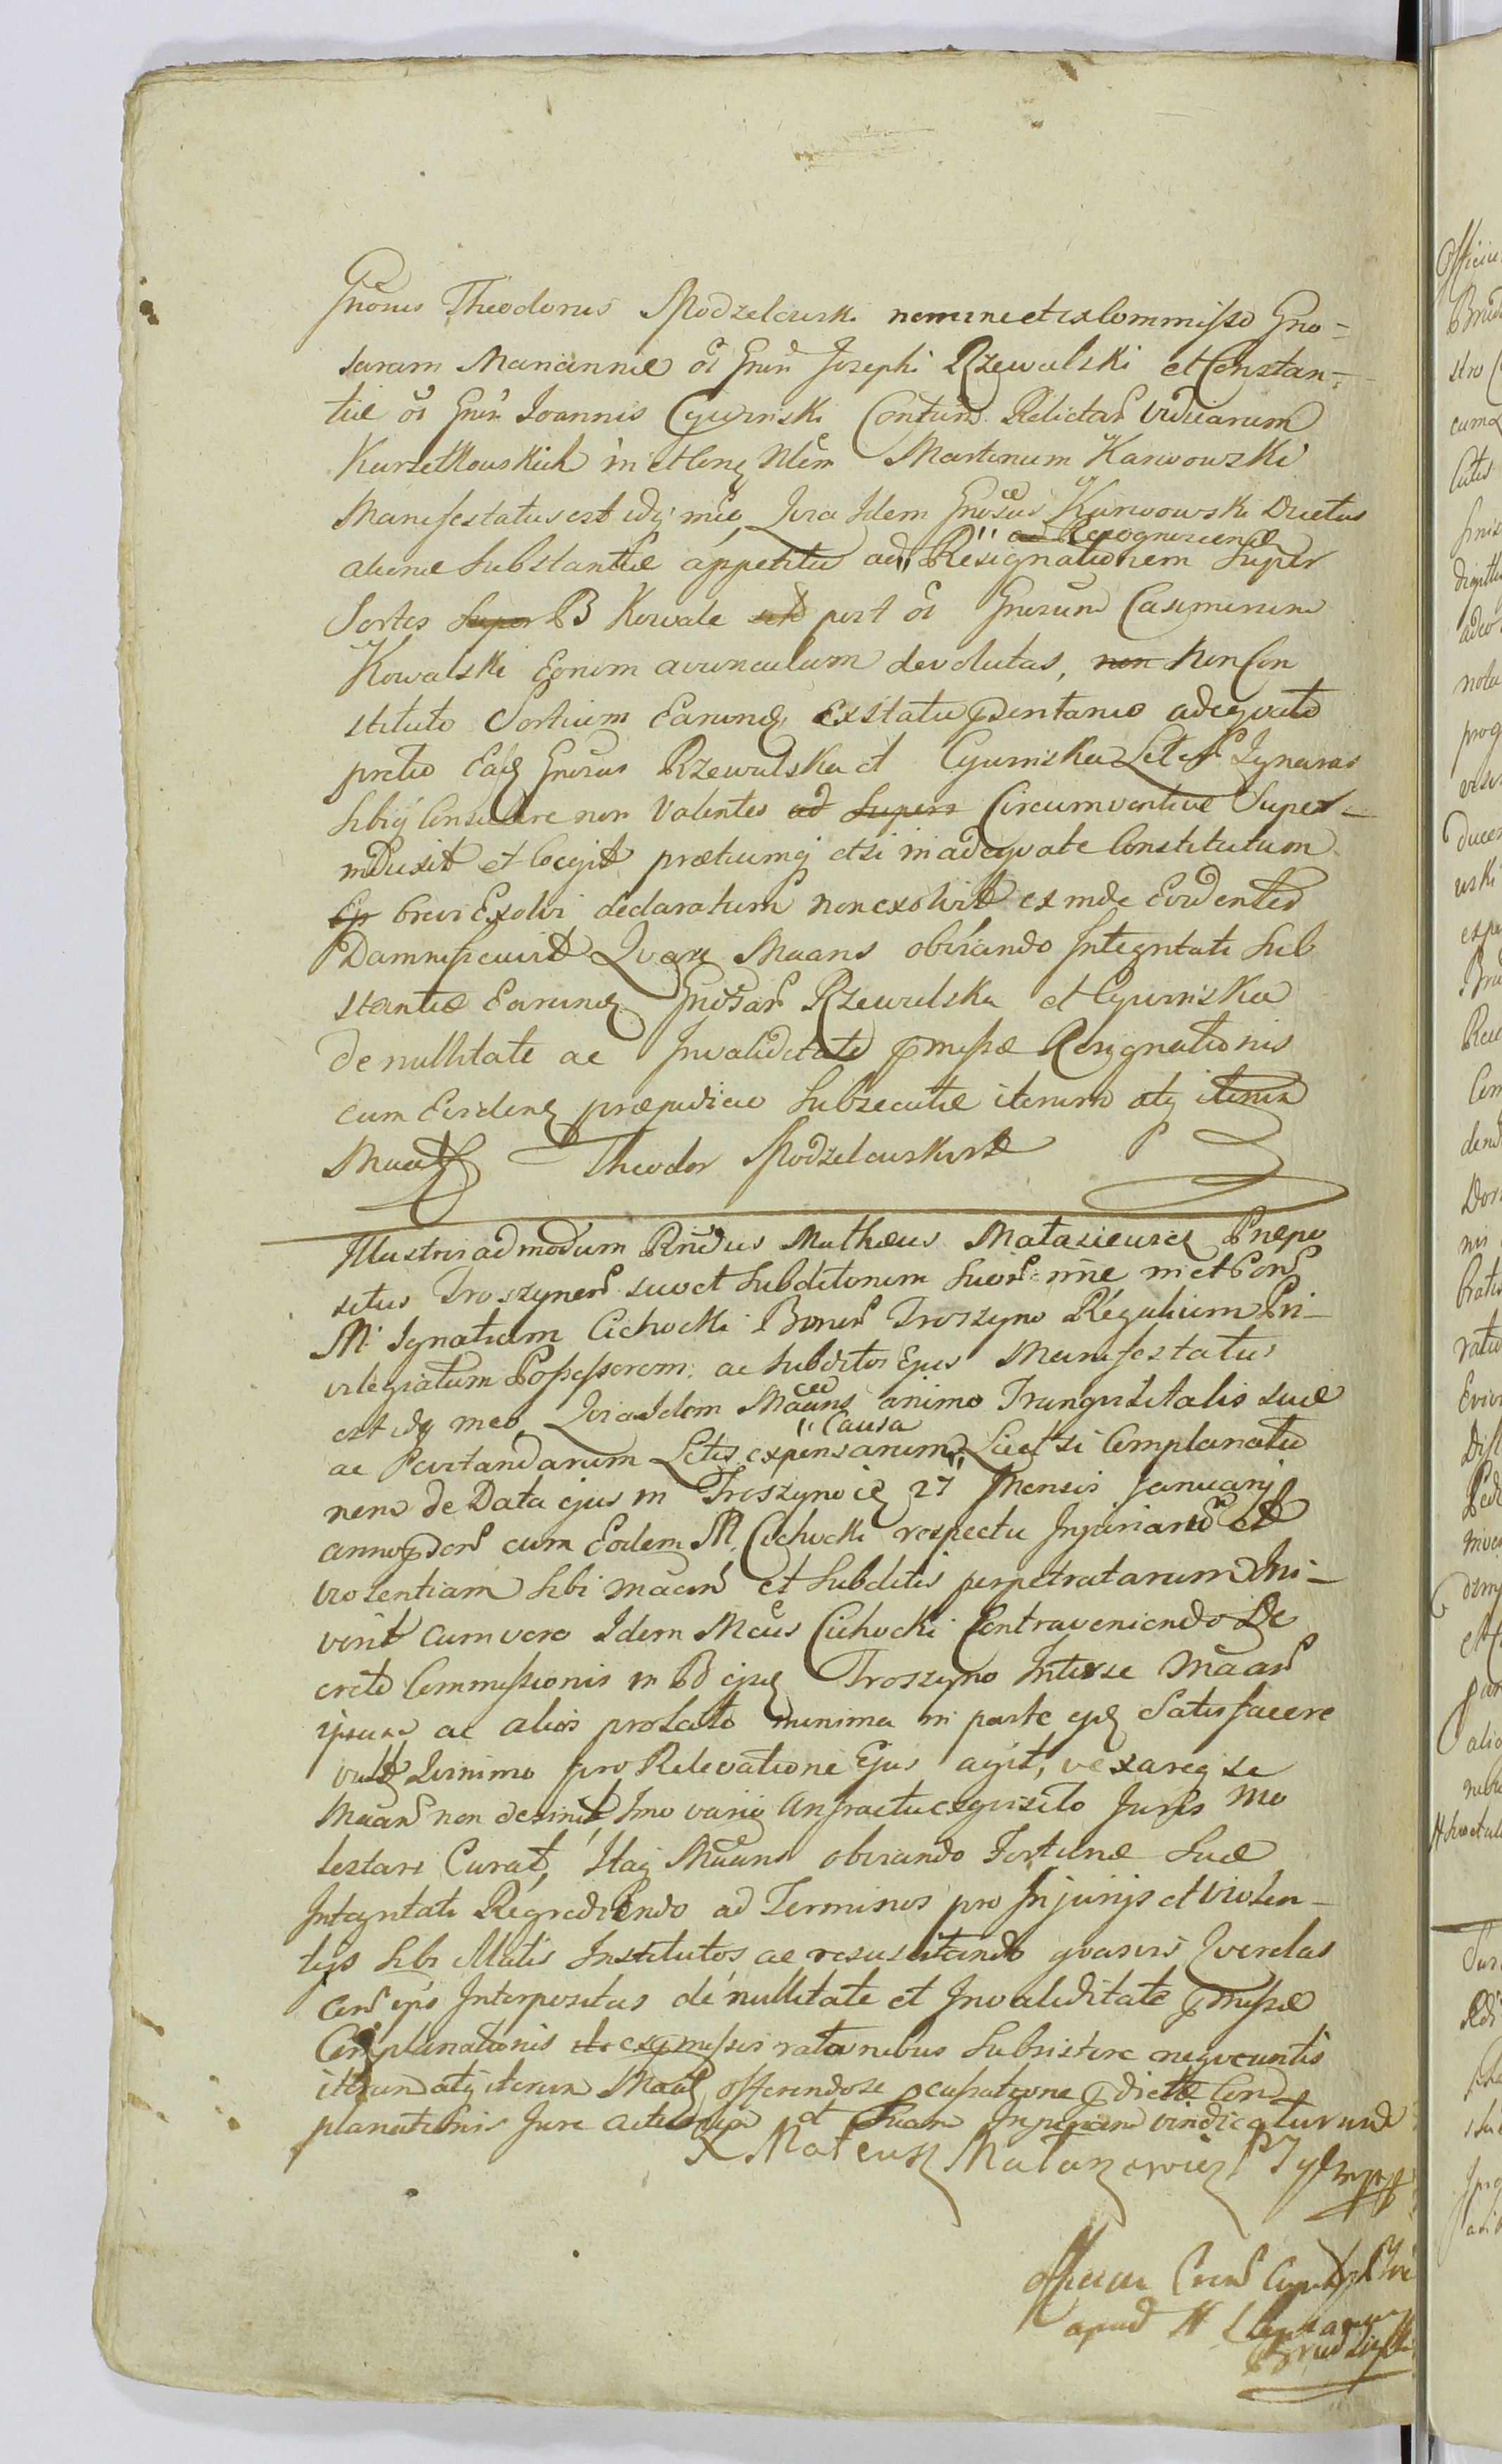 Gnosus Theodorus Modzelewski nomine et ex Commisso Gno-
sarum Mariannae oi Gnri Josephi Rzewulski et Constan-
tiae oi Gnri Joannis Cywinski Contum Relictar viduarum
Kurzetkowskich in et Con Mcm Martinum Karwowski
Manifestatus est idq meo Quia Idem Gnosus Karwowski Ductus
ad Recognoscend
alienae Substantiae appetitu ad Resignationem Super
Sortes Super B Kowale post oi Gnosum Casimirum
Kowalski Eorum avunculum devolutas, non Non Con
stituto Sortium Earund Exstatu pdentaneo adequato
pretio Easd Gnosas Rzewulska et Cywinska Liter Ignaras
Sibiq Consulere non Valentes ad Supers Circumventive Super-
induxit et Coegit praetiumq etsi inadequate Constitutum
brevi Exolvi declaratum non exolvit ex inde Evidenter
Damnificavit Quare Maans obviando Integritati Sub
stantiae Earund Gnosar Rzewulska et Cywinska
de nullitate ac Invaliditate pmissae Resignationis
cum Eviden praejudicio Subsecutae iterum atq iterum
Maatt Theodor Modzelewski
Illustris admodum Rndus Mathaeus Mataziewicz Praepo
situs Troszynen suo et Subditorum Suor nne in et Con
M. Ignatium Cichocki Bonor Troszyno Regalium Pri-
vilegiatum Possessorem ac Subditos Ejus Manifestatus
est idq meo Quia Idem Maans animo Tranquilitatis suae
Causa
ac Parvitandarum Litis expensarum Licet si Complanatio
nem de Data ejus in Troszyno id 27 Mensis Januarij
anno pdni cum Eodem M. Cichocki respectu Injuriarum et
violentiam Sibi Maan et Subditis perpetratarum Ini-
verit cum vero Idem Mcus Cichocki Contraveniendo De
creto Commissionis in B ejsd Troszyno Inter se Maan
ipsum ac alios prolato minima in parte ejd Satisfacere
vult Quinimo pro Relevatione Ejus agit, vexareq se
Maan non desinit, Imo vario Anfractu exquisito Juris mo
lestari Curat, Itaq Maans obviando Fortunae Suae
Integritati Regrediendo ad Terminos pro Injurijs et Violen-
tijs Sibi Illatis Institutos ac resuscitando quasvis Querelas
Con ips Interpositas de nullitate et Invaliditate pmissae
Complanationis ex pmissis rationibus Subsistere nequeuntis
iterum atq iterum Maatt offerendo se pcussatione pdictae Com
planationis Jure acturum et Suam Injuriam vindicaturum
X Mateusz Mataziewicz P T
apud N